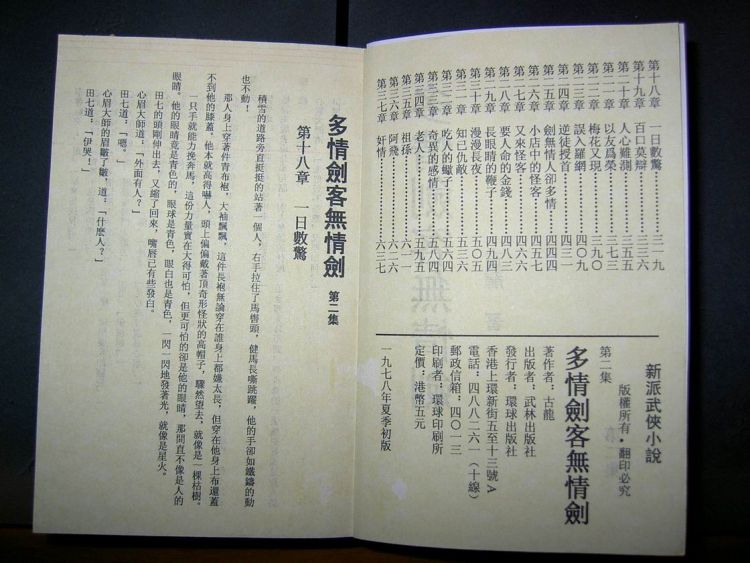 第十八章 一日數驚…………三一九
第十九章 百口莫辯…………三三六
第二十章 人心難測…………三五五
第二一章 以友爲榮…………三七三
第二二章 梅花又現…………三九〇
第二三章 誤入羅網…………四〇九
第二四章 逆徒授首…………四三一
第二五章 劍無情人卻多情…………四四四
第二六章 小店中的怪客…………四五七
第二七章 又來怪客…………
第二八章 要人命的金錢…………四八三
第二九章 長眼睛的鞭子…………四九四
第三十章 漫漫長夜…………五〇五
第三一章 知己仇敵…………
第三二章 吃人的蠍子…………
第三三章 奇異的感情…………五八四
第三四章 老人…………五九五
第三五章 祖孫…………
第三六章 阿飛…………六一六
第三七章 奸情…………六三七
新派武俠小說
版權所有•翻印必究
多情劍客無情劍
第二集
著作者：古龍
出版者：武林出版社
發行者：環球出版社
香港上環新街五至十三號A
電話：四八八二六一（十線）
郵政信箱：四〇一三
印刷者：環球印刷所
定價：港幣五元
一九七八年夏季初版
多情劍客無情劍 第二集
第十八章 一日數驚
積雪的道路旁直挺挺的站著一個人，右手拉住了馬轡頭，健馬長嘶跳躍，他的手卻如鐵鑄的動
也不動！
那人身上穿著件青布袍，大袖飄飄，這件長袍無論穿在誰身上都嫌太長，但穿在他身上布還蓋
不到他的膝蓋。他本就高得嚇人，頭上偏偏戴著頂奇形怪狀的高帽子，驟然望去，就像是一棵枯樹。
一只手就能力挽奔馬，這份力量實在大得可怕，但更可怕的卻是他的眼睛，那簡直不像是人的
眼睛。他的眼睛竟是青色的，眼球是青色，眼白也是青色，一閃一閃地發著光，就像是星火。
田七的頭剛伸出去，又縮了回來，嘴唇已有些發白。
心眉大師道：「外面有人？」
田七道：「嗯。」
心眉大師的眉皺了皺，道：「什麽人？」
田七道：「伊哭！」